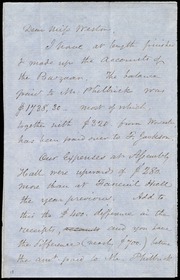 Dear Miss Weston
I have at length finished
& made up the Accounts of
the Bazaar. The balance
paid to Mr Philbrick was
$1725,30 - most of which
together with $320 from
has been paid over to F. Jackson
Our Expenses at Assembly
Hall were upwards of $250
more than at Faneuil Hall
the year previous. Add to
this the $400 difference in the
receipts, and you have
the difference (nearly $700) between
the amt. paid to Mr Philbrick